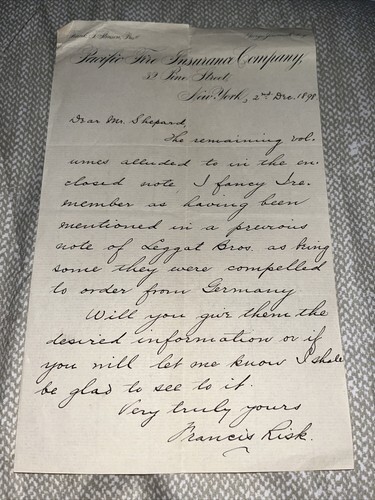 Pacific Fire Insurance Company,
59 Pine Street,
New York, 2nd Dec. 1898
Dear Mr. Shepard,
The remaining vol-
umes alluded to in the en-
closed note, I fancy I re-
member as having been
mentioned in a previous
note of Leggat Bros. as being
some they were compelled
to order from Germany
Will you give them the
desired information or if
you will let me know I shall
be glad to see to it.
Very truly yours
Francis Risk.